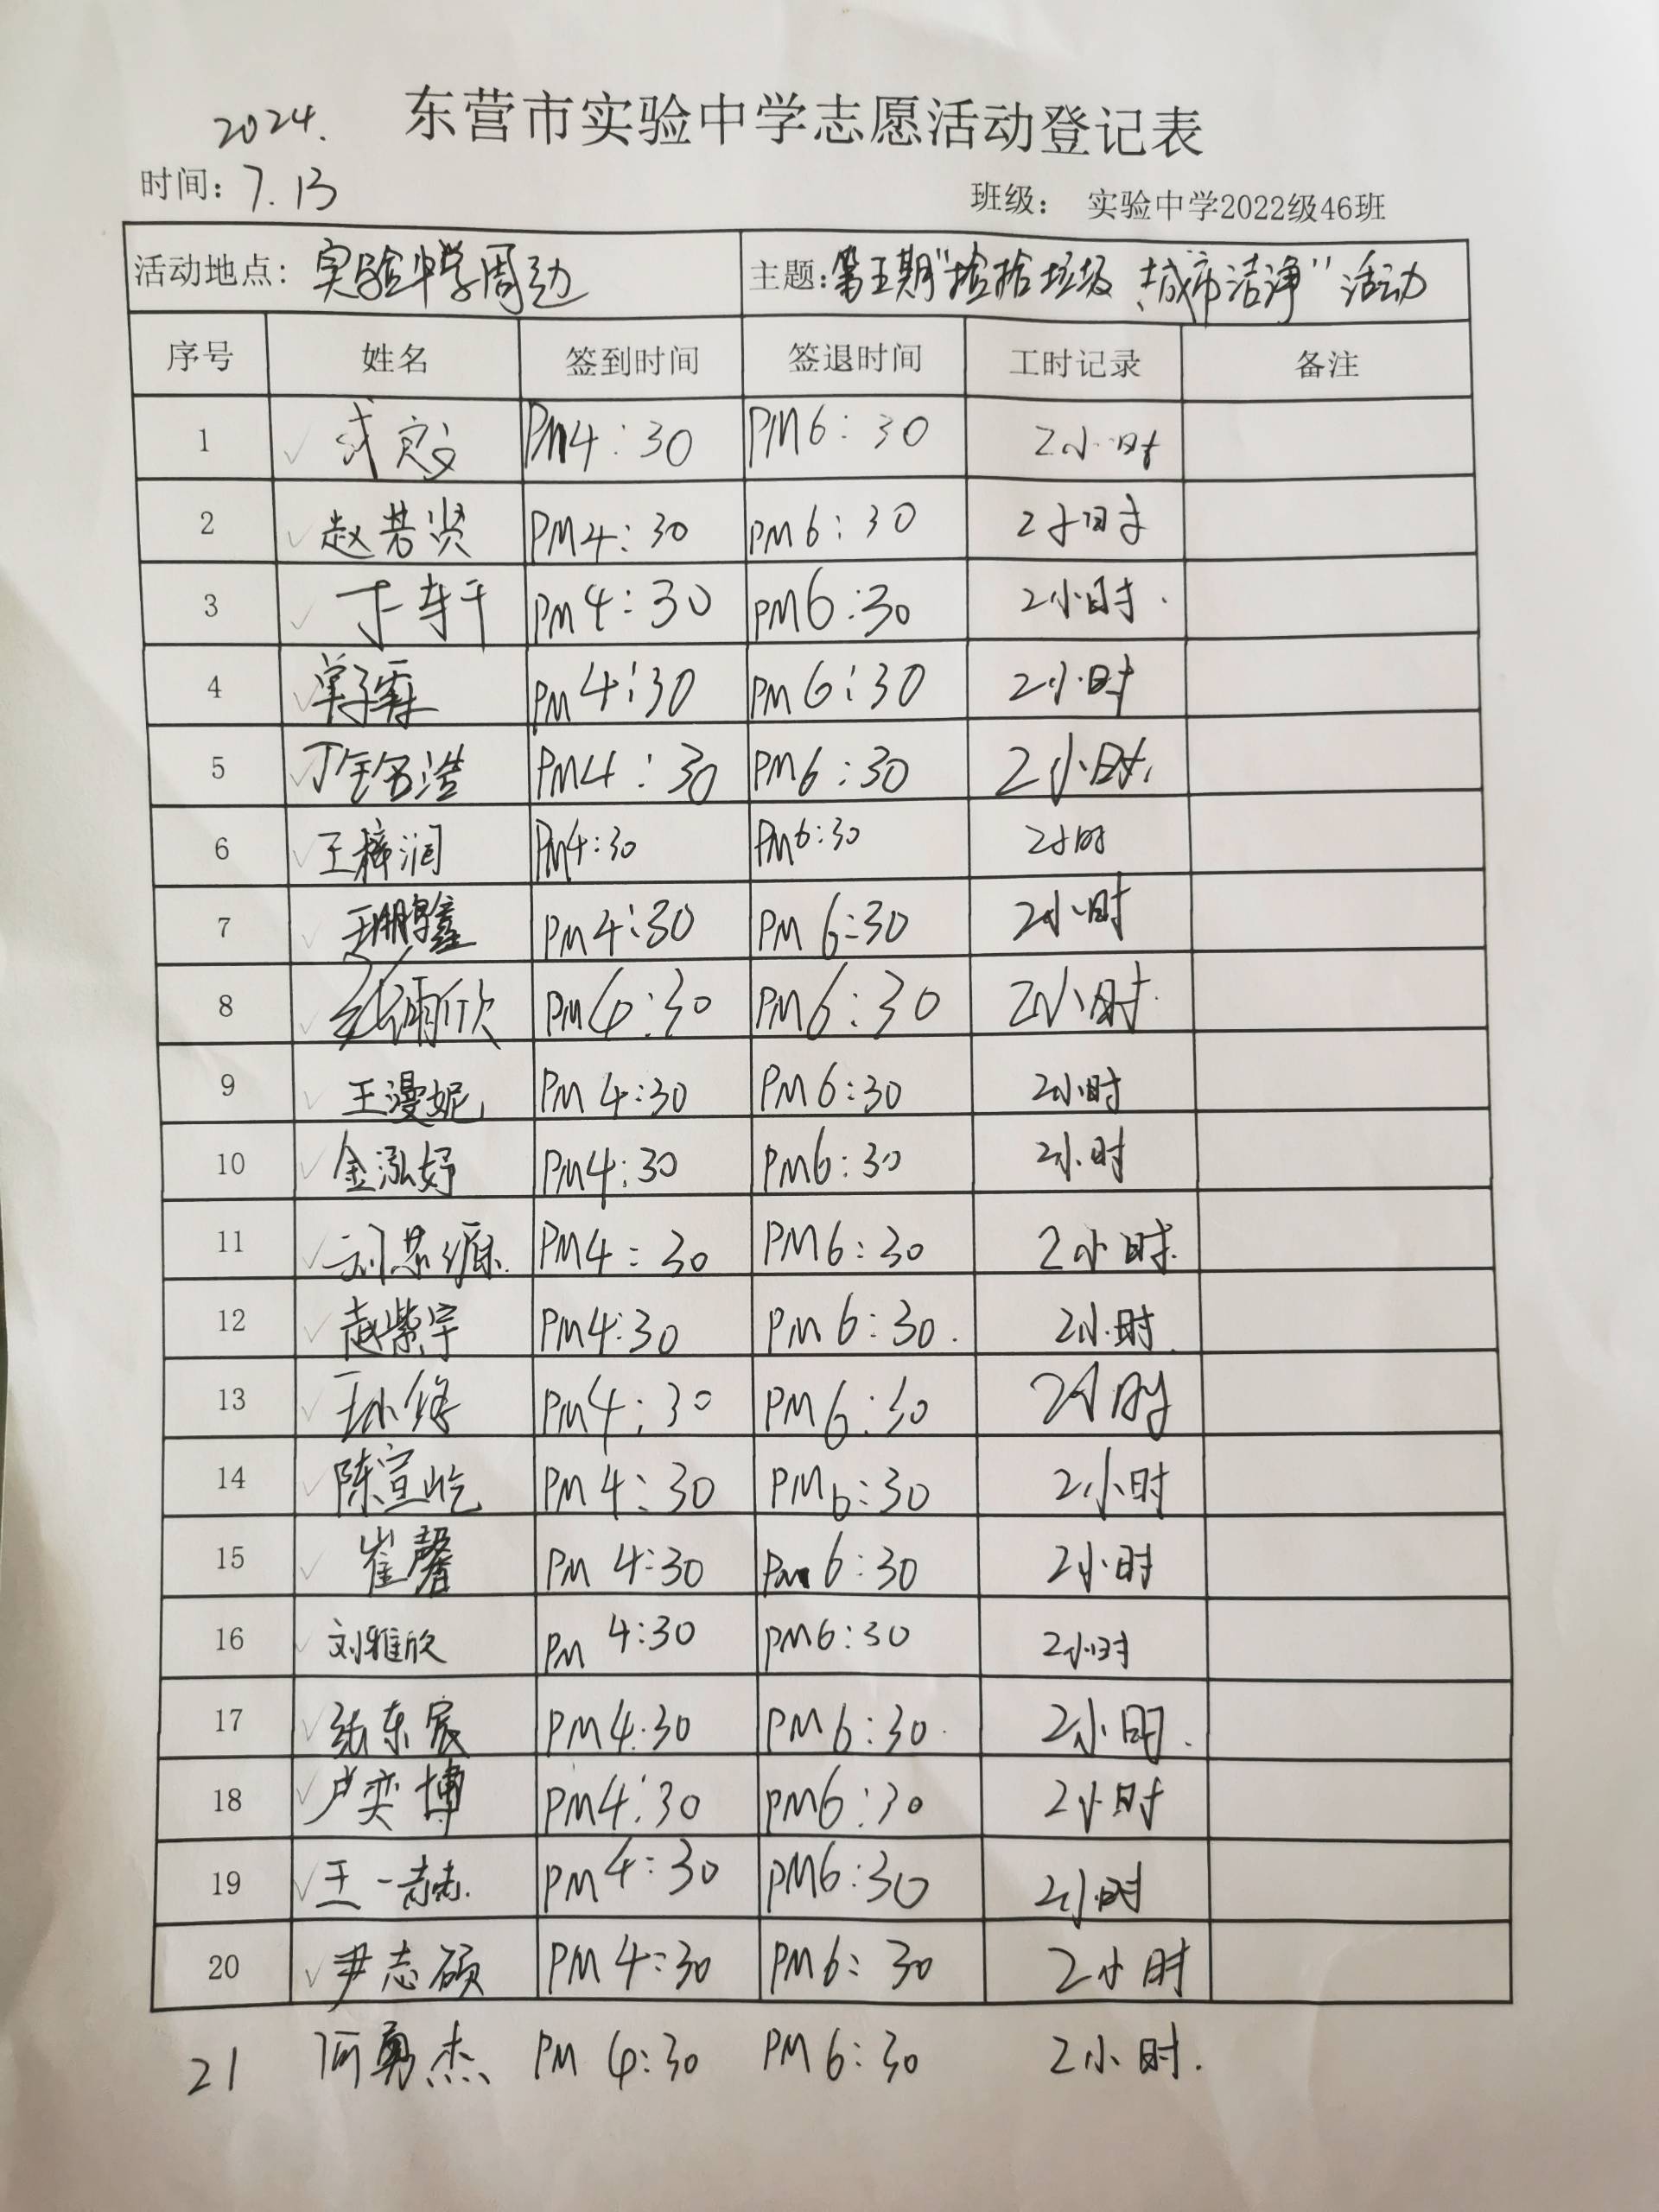 东营市实验中学志愿活动登记表
2024.
时间：7.13 班级： 实验中学2022级46班
活动地点：实验中学周边 主题：第五期"捡拾垃圾 城市洁净"活动
序号 姓名 签到时间 签退时间 工时记录 备注
1 PM4:30 PM6:30 2小时
2 赵若贤 PM4:30 PM6:30 2小时
3 PM4:30 PM6:30 2小时.
4 单子霖 PM4:30 PM6:30 2小时
5 丁铭浩 PM4:30 PM6:30 2小时.
6 王梓润 PM4:30 PM6:30 2小时
7 王鹏鑫 PM4:30 PM6:30 2小时
8 张雨欣 PM4:30 PM6:30 2小时.
9 王漫妮 PM4:30 PM6:30 2小时
10 金泓妤 PM4:30 PM6:30 2小时
11 刘苏源. PM4:30 PM6:30 2小时.
12 赵紫宇 PM4:30 PM6:30. 2小时.
13 PM4:30 PM6:30 2小时
14 陈宣屹 PM4:30 PM6:30 2小时
15 崔馨 PM4:30 PM6:30 2小时
16 刘雅欣 PM4:30 PM6:30 2小时
17 张东宸 PM4:30 PM6:30. 2小时.
18 卢奕博 PM4:30 PM6:30 2小时
19 王一赫. PM4:30 PM6:30 2小时
20 尹志硕 PM4:30 PM6:30 2小时
21 何勇杰 PM4:30 PM6:30 2小时.